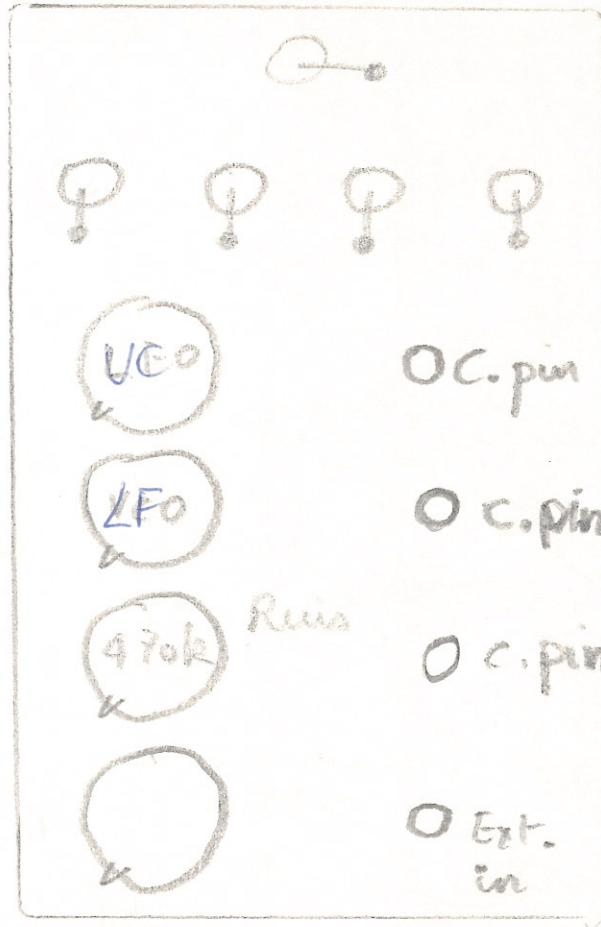 VCO
C. pin
LFO
C. pin
470k
Ruis
C. pin
Ext.
in